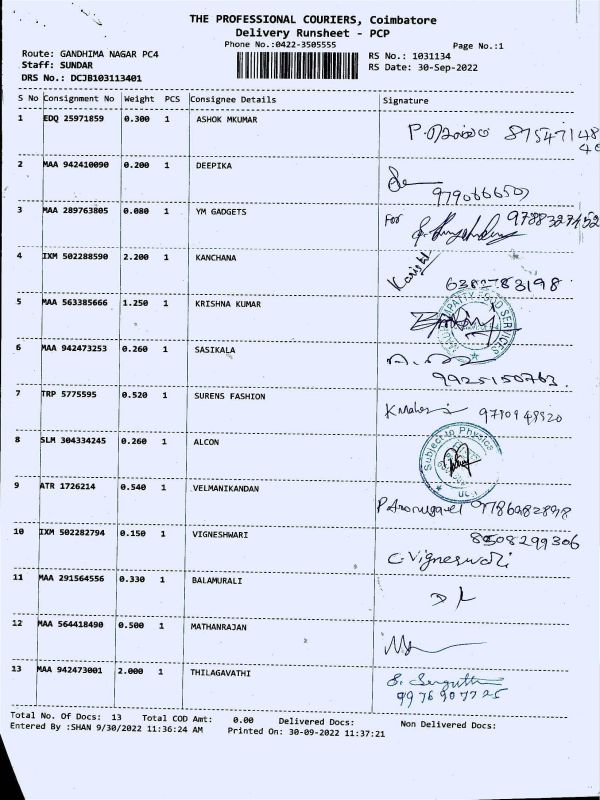 THE PROFESSIONAL COURIERS, Coimbatore
Delivery Runsheet - PCP
Phone No.:0422-3505555
Page No.:1
Route: GANDHIMA NAGAR PC4
RS No.: 1031134
Staff: SUNDAR
RS Date: 30-Sep-2022
DRS No.: DCJB103113401
S No Consignment No Weight PCS Consignee Details Signature
1 EDQ 25971859 0.300 1 ASHOK MKUMAR
2 MAA 942410090 0.200 1 DEEPIKA
9790666507
3 MAA 289763805 0.080 1 YM GADGETS For
4 IXM 502288590 2.200 1 KANCHANA
6382783198
5 MAA 563385666 1.250 1 KRISHNA KUMAR
FOOD SERVICES
6 MAA 942473253 0.260 1 SASIKALA
9925150763.
7 TRP 5775595 0.520 1 SURENS FASHION
8 SLM 304334245 0.260 1 ALCON
Subject in Physics
9 ATR 1726214 0.540 1 VELMANIKANDAN
10 IXM 502282794 0.150 1 VIGNESHWARI 8508299306
C. Vigneswari
11 MAA 291564556 0.330 1 BALAMURALI
12 MAA 564418490 0.500 1 MATHANRAJAN
13 MAA 942473001 2.000 1 THILAGAVATHI
9976907725
Total No. Of Docs: 13 Total COD Amt: 0.00 Delivered Docs: Non Delivered Docs:
Entered By :SHAN 9/30/2022 11:36:24 AM Printed On: 30-09-2022 11:37:21